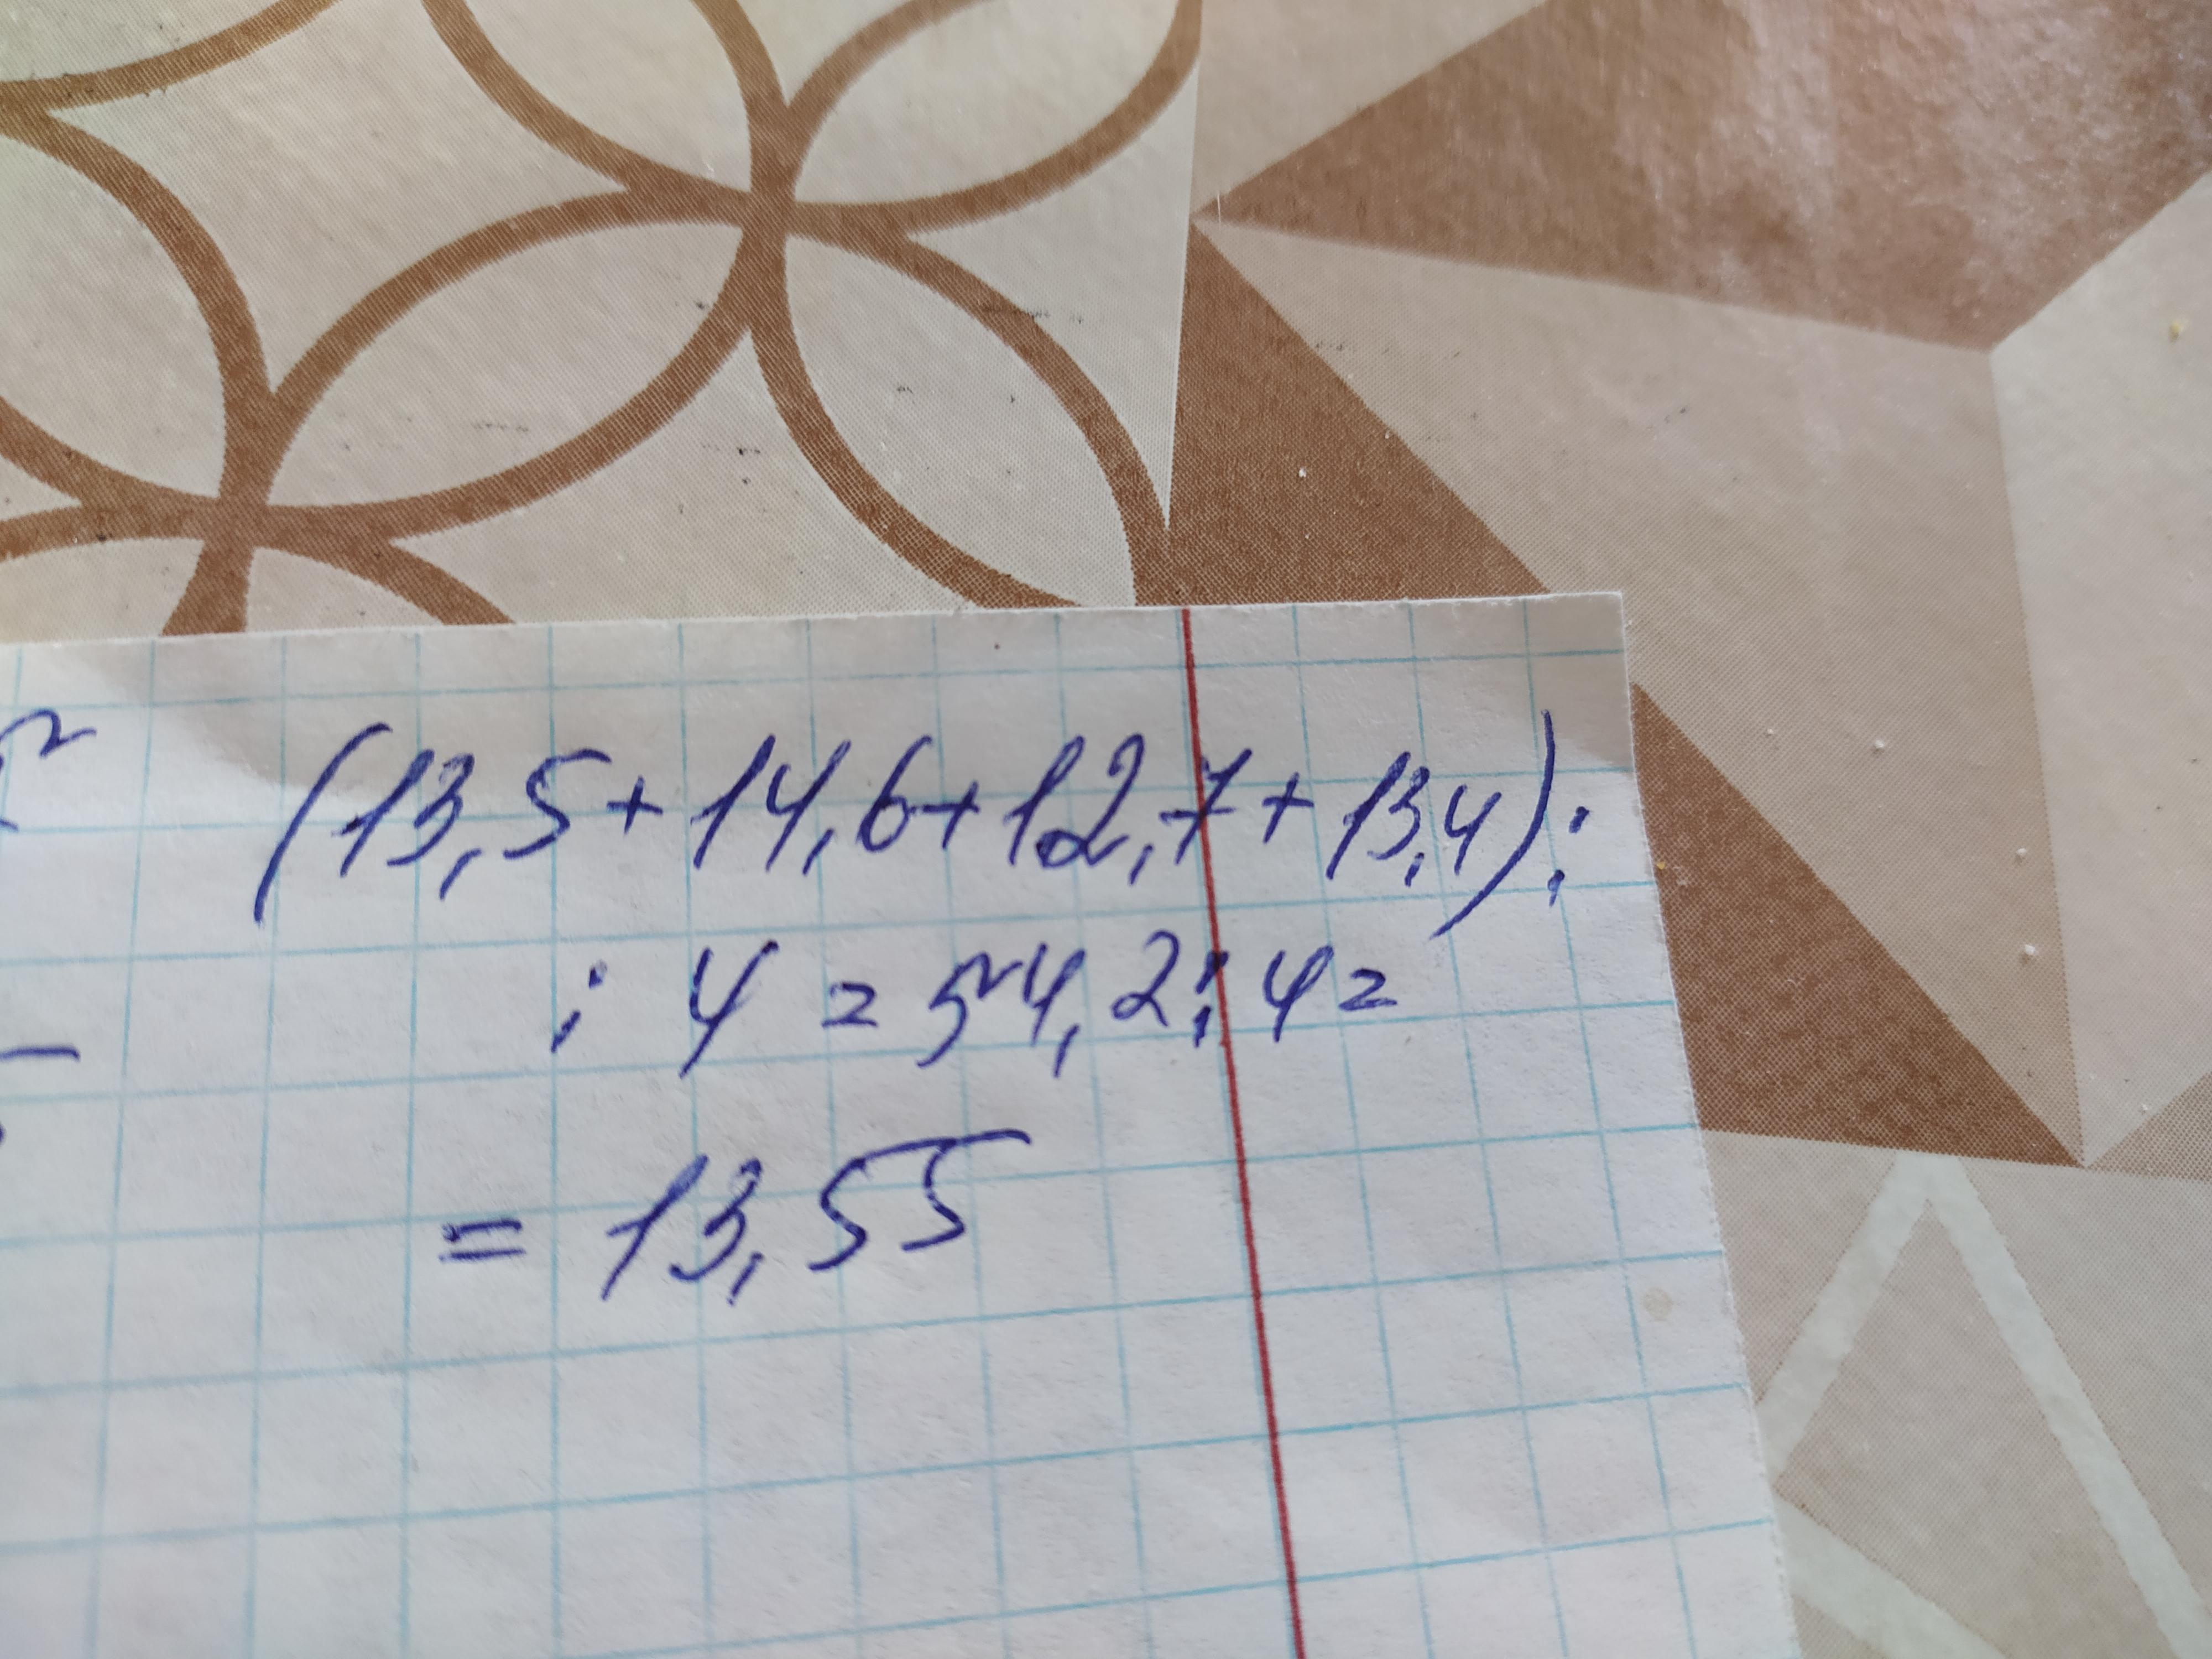 (13,5+14,6+12,7+13,4):
: 4 = 54,2 : 4 =
= 13,55